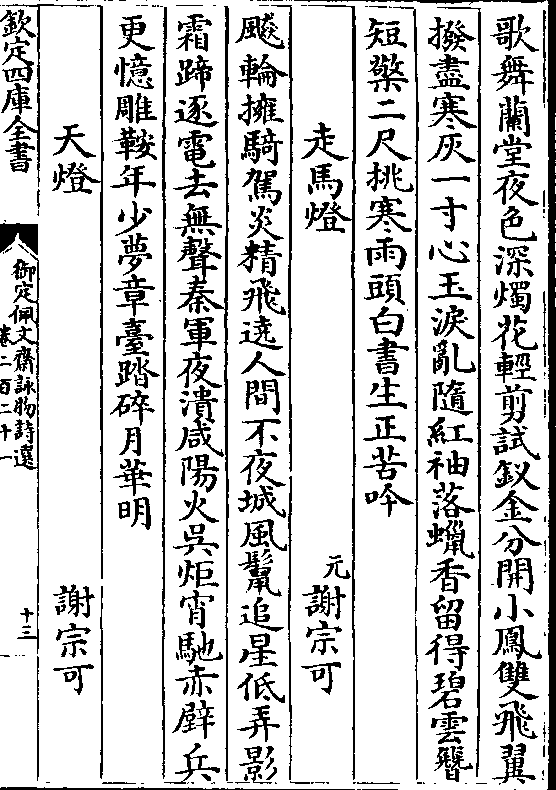 歌舞蘭堂夜色深燭花輕剪試釵金分開小鳳雙飛翼
撥盡寒灰一寸心玉淚亂隨紅袖落蠟香留得碧雲簪
短檠二尺挑寒雨頭白書生正苦吟
走馬燈 元謝宗可
飈輪擁騎駕炎精飛遶人間不夜城風鬛追星低弄影
霜蹄逐電去無聲秦軍夜潰咸陽火吳炬宵馳赤壁兵
更憶雕鞍年少夢章臺踏碎月華明
天燈 謝宗可
欽定四庫全書 御定佩文齋詠物詩選 卷二百二十一 十三